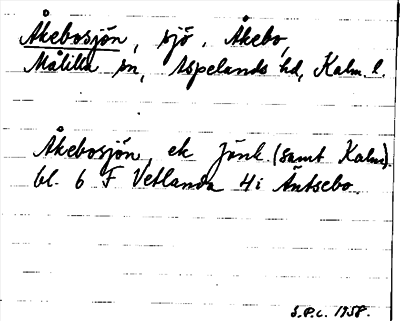 Åkebosjön, sjö, Åkebo,
Målilla sn, Aspelands hd, Kalm. l.
Åkebosjön, ek Jönk. (samt Kalm).
bl. 6 F Vetlanda 4 i Äntsebo.
S.P.L. 1958.